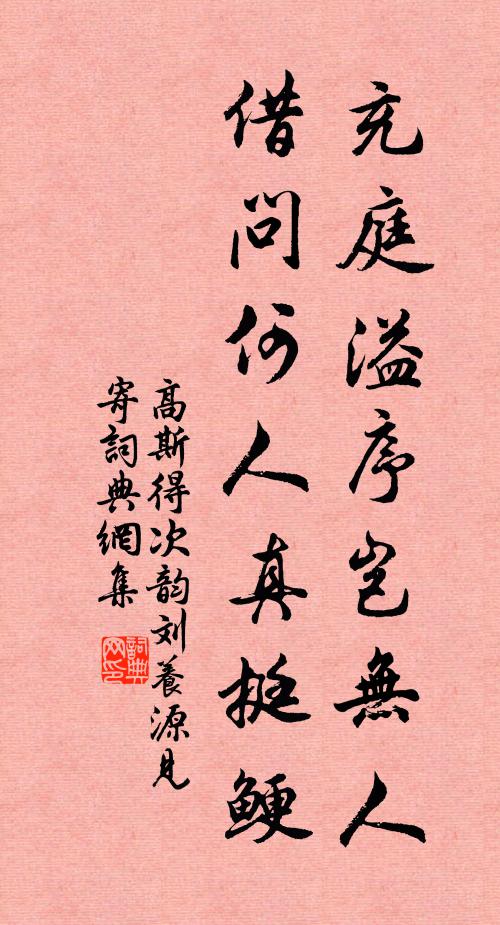 充庭溢序豈無人
借問何人真挺鯁
高斯得次韵刘養源見
寄詞典網集
詞典网印